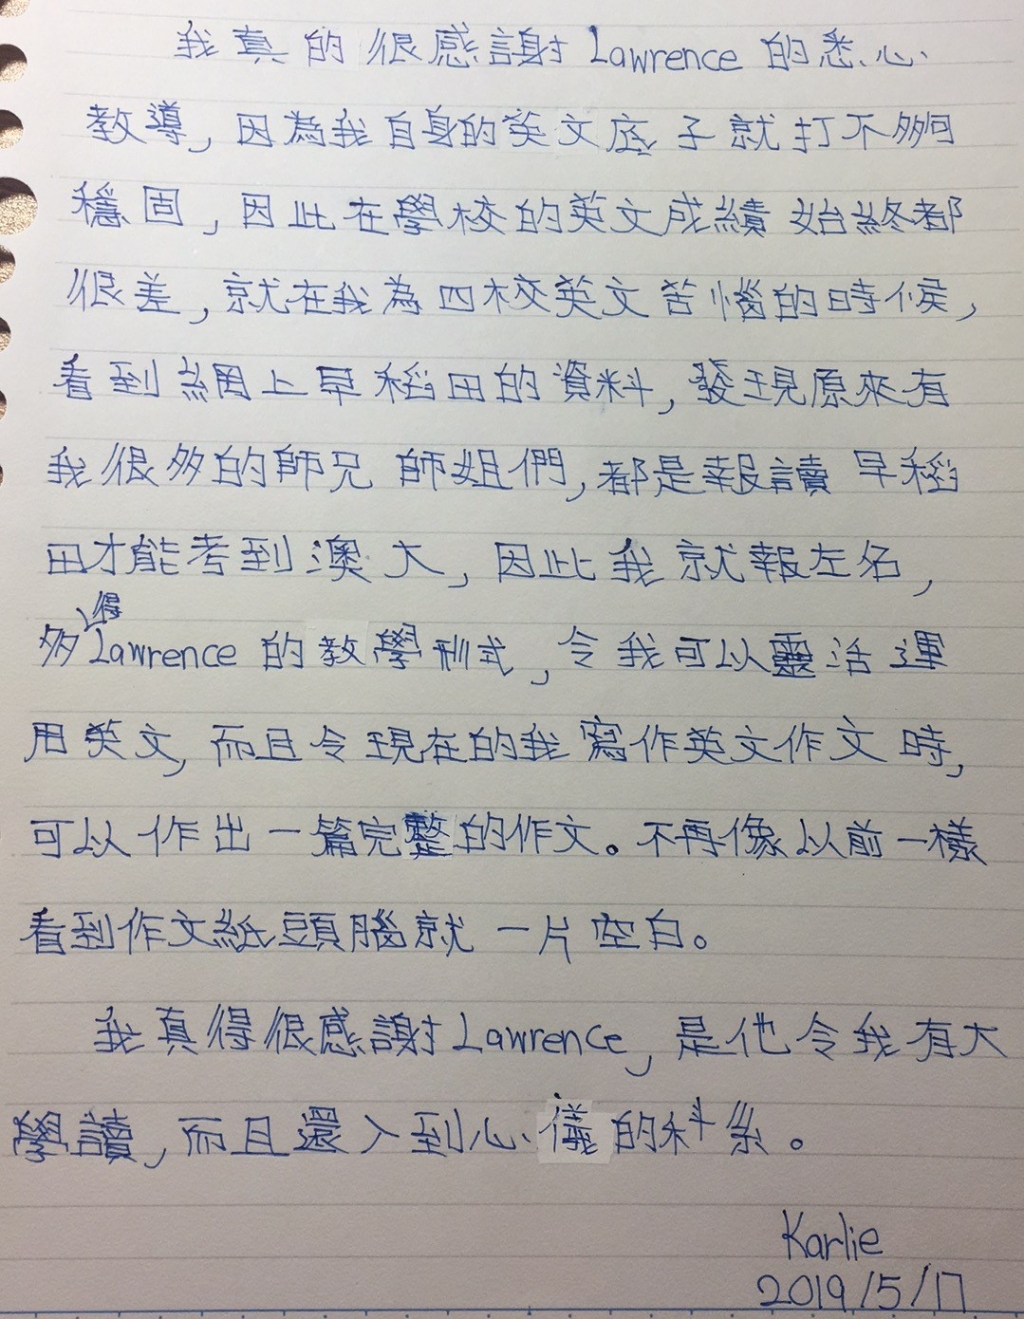 我真的很感謝Lawrence的悉心
教導,因為我自身的英文底子就打不夠
穩固,因此在學校的英文成績始終都
很差,就在我為四校英文苦惱的時候,
看到網上早稻田的資料,發現原來有
我很多的師兄師姐們,都是報讀早稻
田才能考到澳大,因此我就報左名,
多得Lawrence的教學形式,令我可以靈活運
用英文,而且令現在的我寫作英文作文時,
可以作出一篇完整的作文。不再像以前一樣
看到作文紙頭腦就一片空白。
我真得很感謝Lawrence,是他令我有大
學讀,而且還入到心儀的科系。
Karlie
2019/5/17